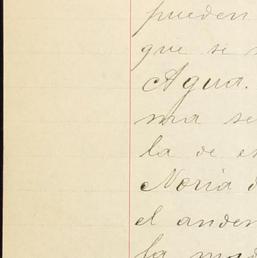 pueden
que se
Agua.
ma se
la de
Noria
el anden
la mad